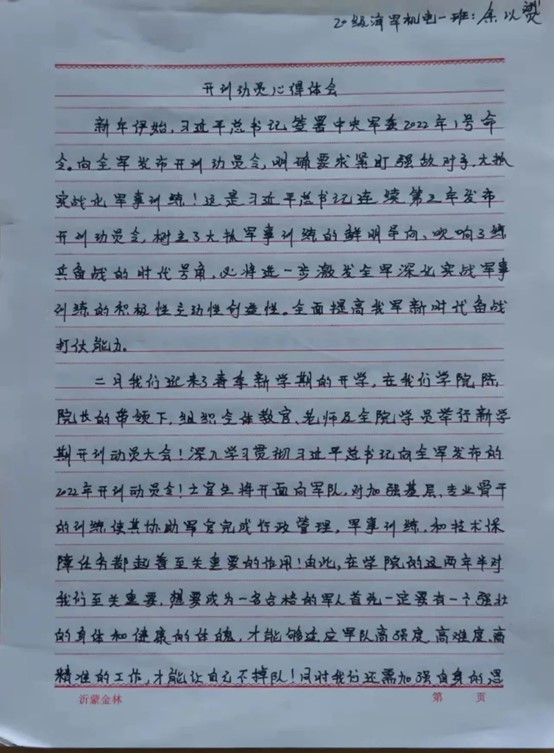 20级海军机电一班：余以贤
开训动员心得体会
新年伊始，习近平总书记签署中央军委2022年1号命
令。向全军发布开训动员令，明确要求紧盯强敌对手，大抓
实战化军事训练！这是习近平总书记连续第五年发布
开训动员令，树立了大抓军事训练的鲜明导向、吹响了练
兵备战的时代号角，必将进一步激发全军深化实战军事
训练的积极性主动性创造性。全面提高我军新时代备战
打仗能力。
二月我们迎来了春季新学期的开学，在我们学院陈
院长的带领下，组织全体教官、老师及全院学员举行新学
期开训动员大会！深入学习贯彻习近平总书记向全军发布的
2022年开训动员令！士官生将开面向军队，对加强基层、专业骨干
的训练使其协助军官完成行政管理，军事训练，和技术保
障任务都起着至关重要的作用！由此，在学院的这两年半对
我们至关重要，想要成为一名合格的军人首先一定要有一个强壮
的身体和健康的体魄，才能够适应军队高强度、高难度、高
精准的工作，才能让自己不掉队！同时我们还需加强自身的思
沂蒙金林 第 页